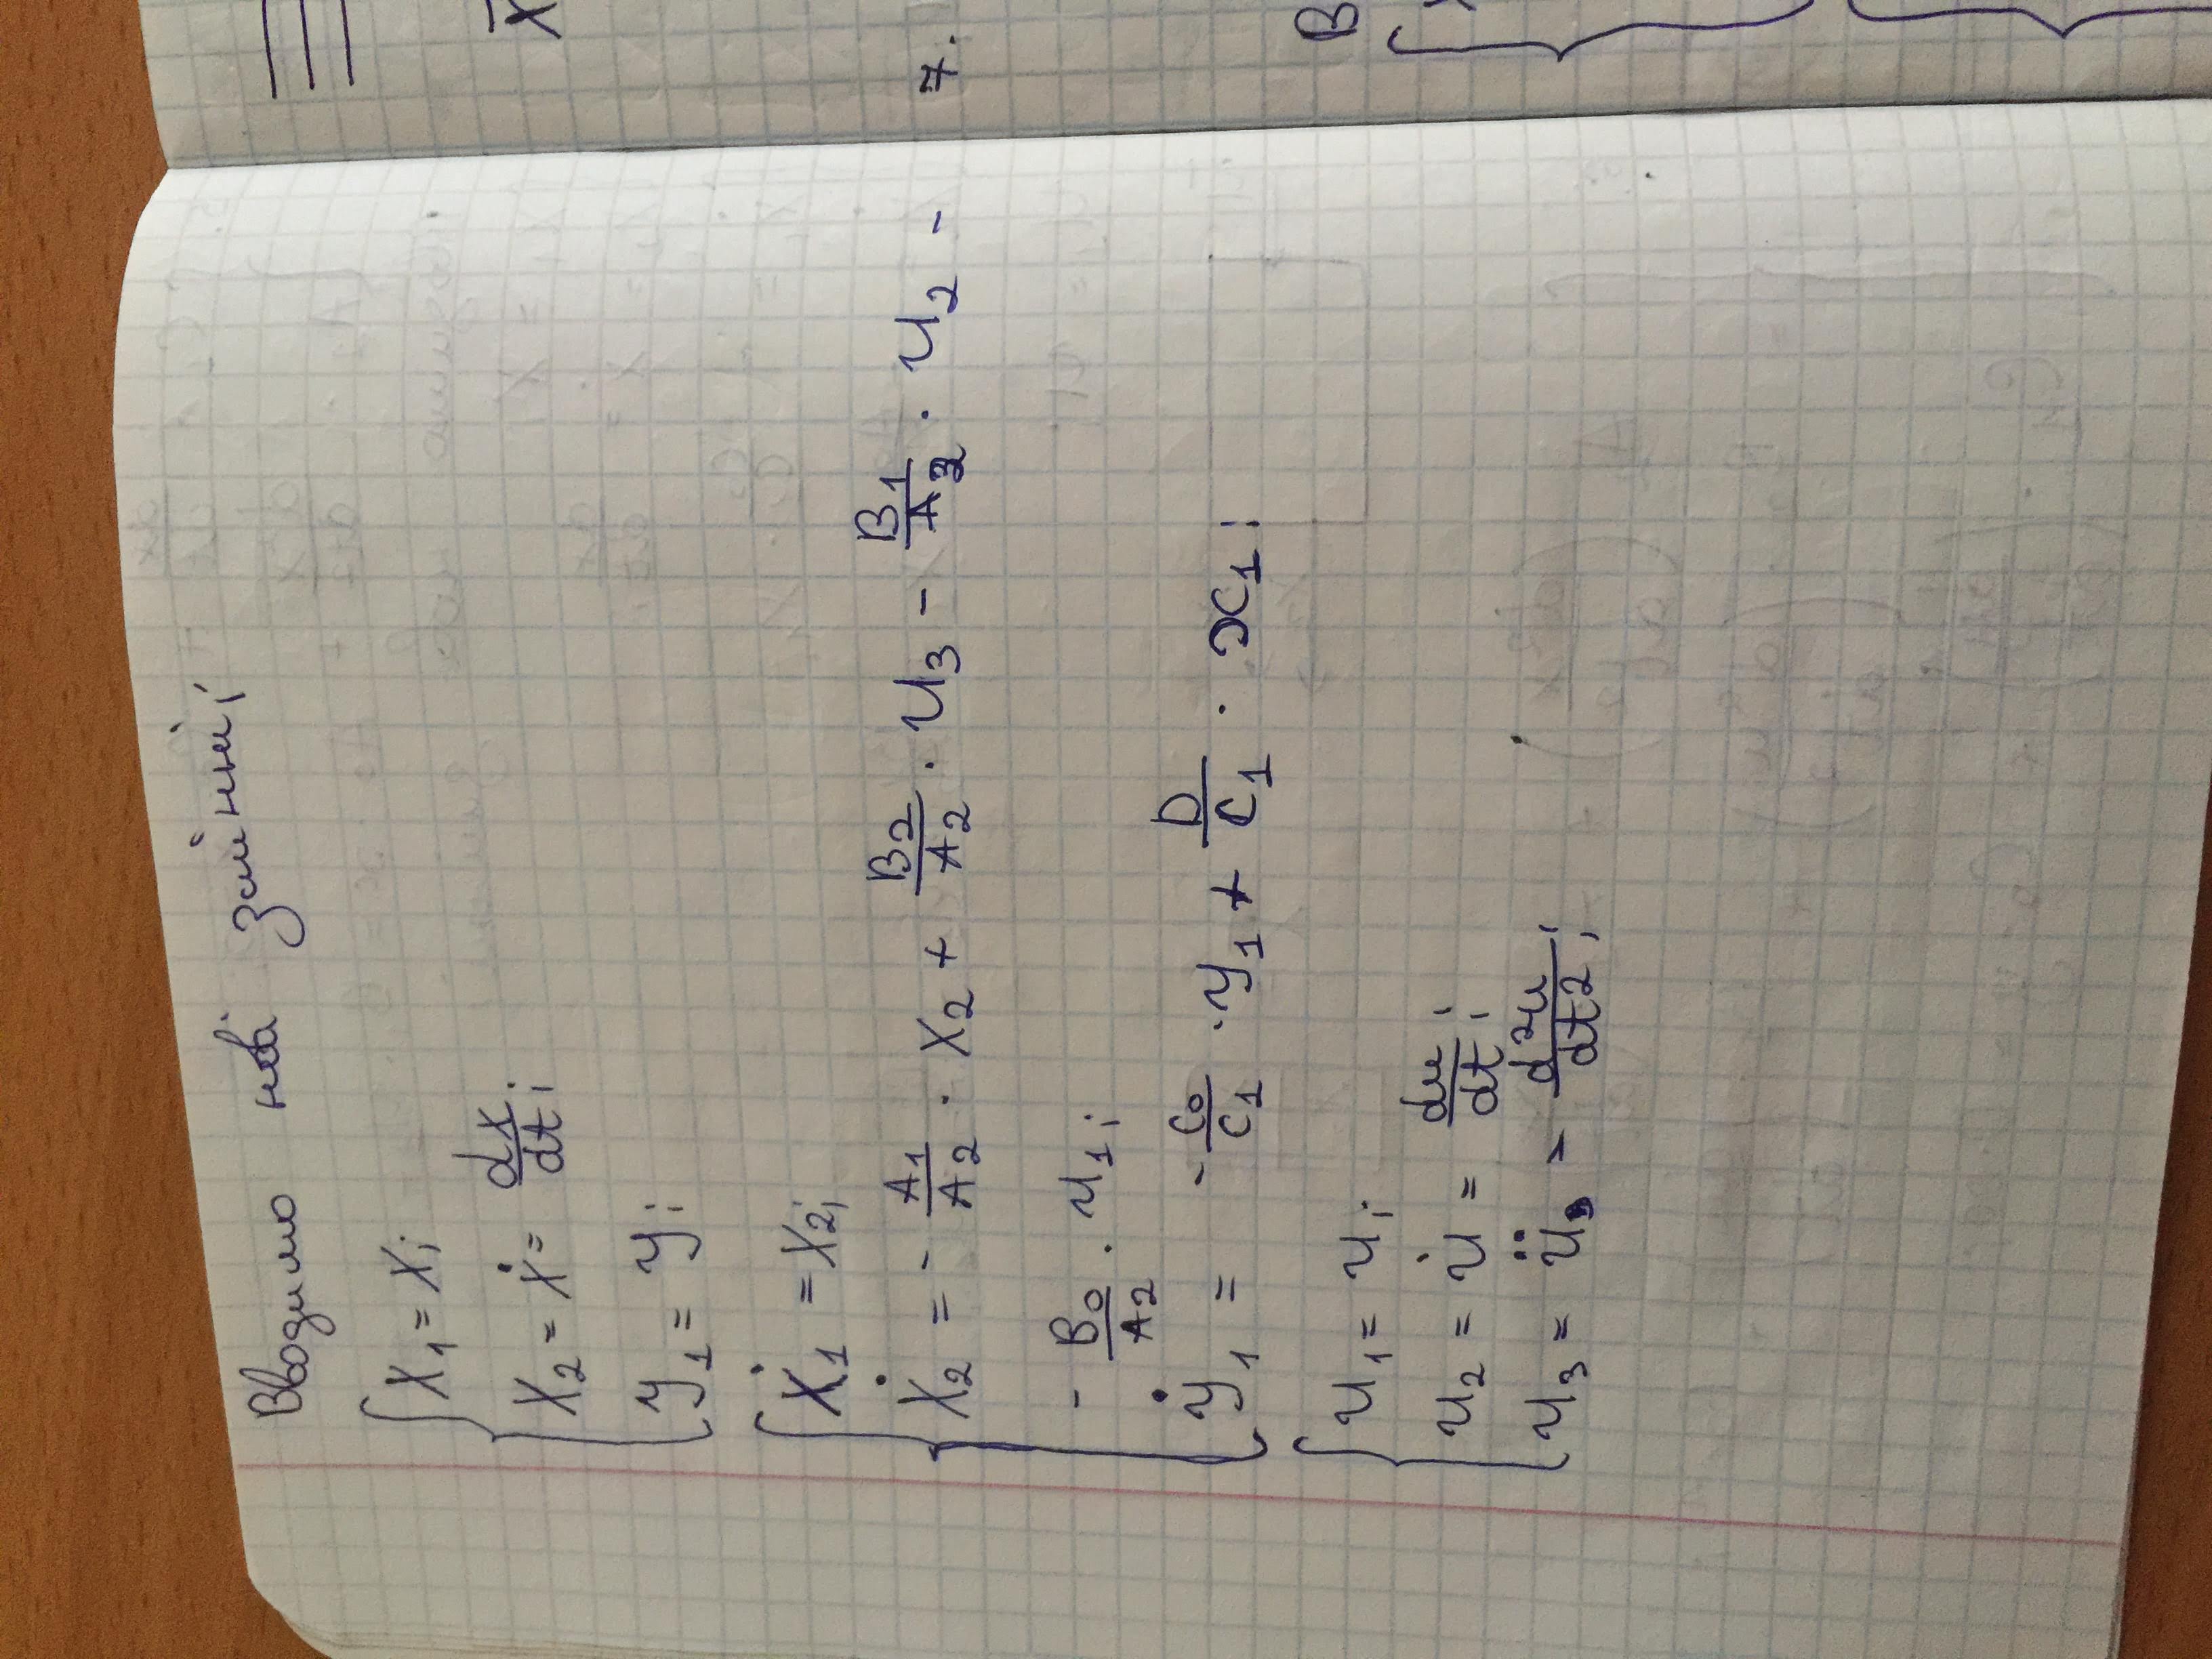 Вводимо нові змінні;
X₁ = X;
X₂ = Ẋ = dx/dt;
y₁ = y;
Ẋ₁ = X₂;
Ẋ₂ = - A₁/A₂ · X₂ + B₂/A₂ · U₃ - B₁/A₂ · U₂ -
- B₀/A₂ · U₁;
ẏ₁ = - C₀/C₁ · y₁ + D/C₁ · x₁;
U₁ = U;
U₂ = U̇ = du/dt;
U₃ = Ü = d²u/dt²;
X
7.
В